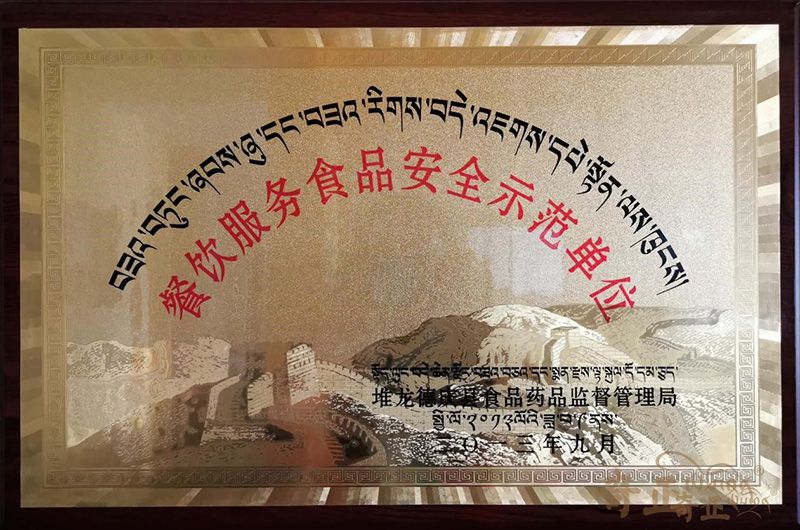 བཟའ་བཏུང་ཞབས་ཞུ་དང་བཟའ་རིགས་བདེ་འཇགས་དཔེ་སྟོན་ལས་ཁུངས།
餐饮服务食品安全示范单位
སྟོད་ལུང་བདེ་ཆེན་རྫོང་བཟའ་བཅའ་དང་སྨན་རྫས་ལྟ་སྐུལ་དོ་དམ་ཅུད་
堆龙德庆县食品药品监督管理局
སྤྱི་ལོ་༢༠༡༣ལོའི་ཟླ་བ་༩་ནས་
二〇一三年九月